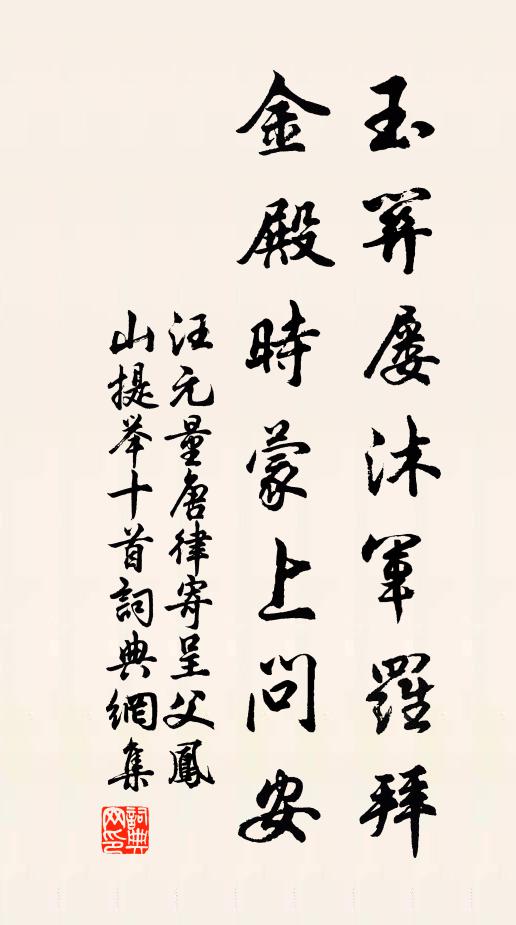 玉笄屢沐軍羅拜
金殿時蒙上問安
汪元量唐律寄呈父鳳
山提举十首詞典網集
詞典
网印